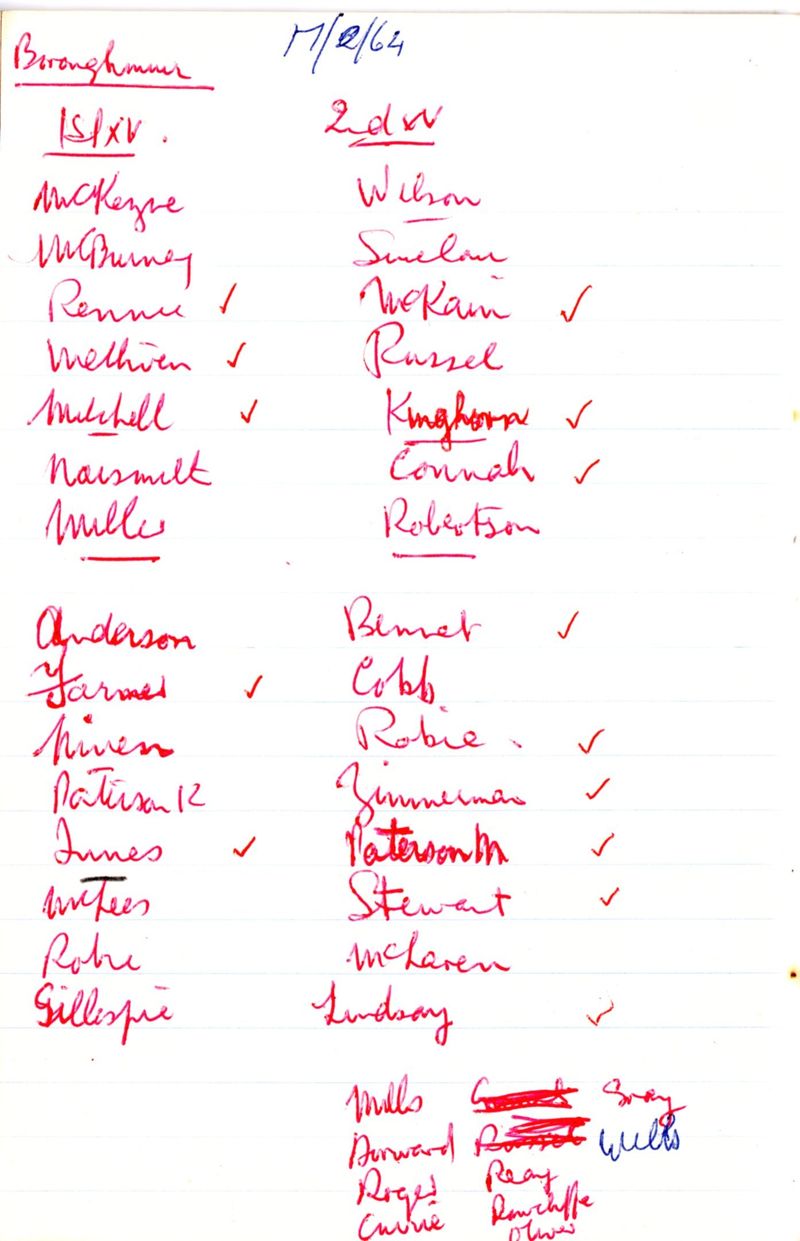 Boroughmuir 17/2/64
1st XV. 2nd XV
McKenzie Wilson
McBurney Sinclair
Rennie ✓ McKain ✓
Methven ✓ Russel
Mitchell ✓ Kinghorn ✓
Naismith Connah ✓
Miller Robertson
Anderson Bennet ✓
Farmer ✓ Cobb
Niven Robie ✓
Paterson R Zimmerman ✓
Innes ✓ Paterson M ✓
McLees Stewart ✓
Robie McLaren
Gillespie Lindsay ✓
Mills Gray
Dorward Russel Wells
Roger Reay
Currie Rawcliffe
Oliver